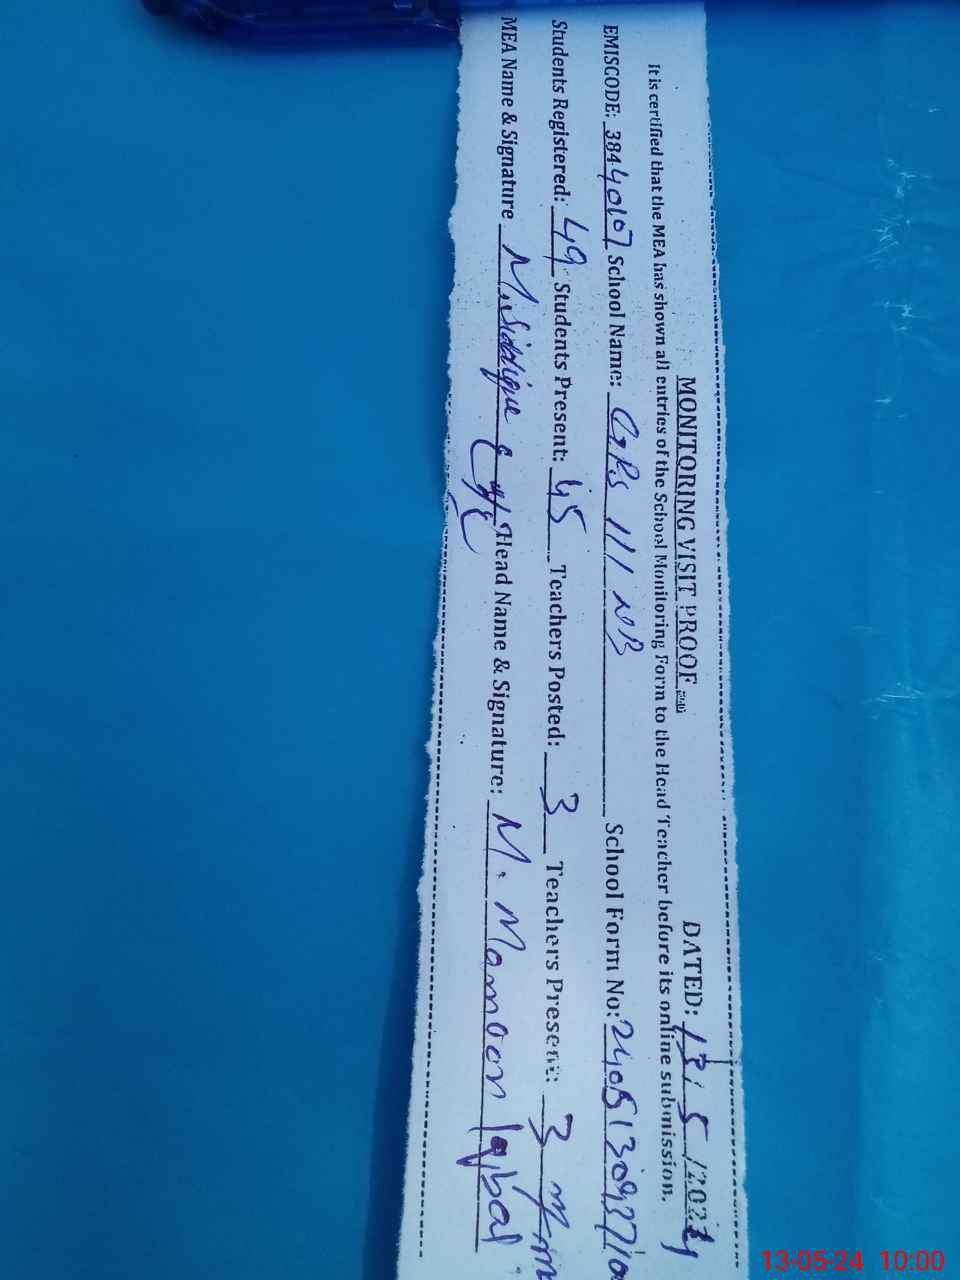 MONITORING VISIT PROOF
DATED: 13/5/2024
It is certified that the MEA has shown all entries of the School Monitoring Form to the Head Teacher before its online submission.
EMISCODE: 38440107 School Name: GPS 111 NB School Form No:
Students Registered: 49 Students Present: 45 Teachers Posted: 3 Teachers Present: 3
MEA Name & Signature M. Siddique Head Name & Signature: M. Mamoon Iqbal
13-05-24 10:00